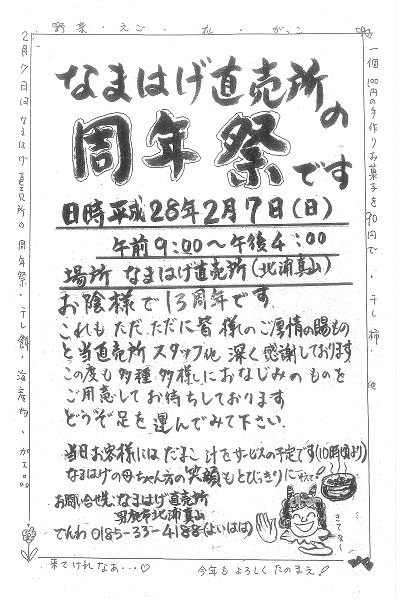 野菜・えご・花・がっこ
なまはげ直売所の
周年祭です
日時 平成28年2月7日(日)
午前9:00～午後4:00
場所 なまはげ直売所(北浦真山)
お陰様で13周年です
これもただただに皆様のご厚情の賜もの
と当直売所スタッフ一同深く感謝しております
この度も多種多様におなじみのものを
ご用意してお待ちしております
どうぞ足を運んでみて下さい.
当日お客様にはだまこ汁をサービスの予定です(10時頃より)
なまはげの母ちゃん方の笑顔もとびっきりに
お問い合せ先、なまはげ直売所
男鹿市北浦真山
でんわ 0185-33-4188(よいはは)
きてな～
一個100円の手作りお菓子を90円で・干し柿・他
2月7日はなまはげ直売所の周年祭・干し餅・海産物・
来てけれなあ…♡
今年もよろしくたのまえ!